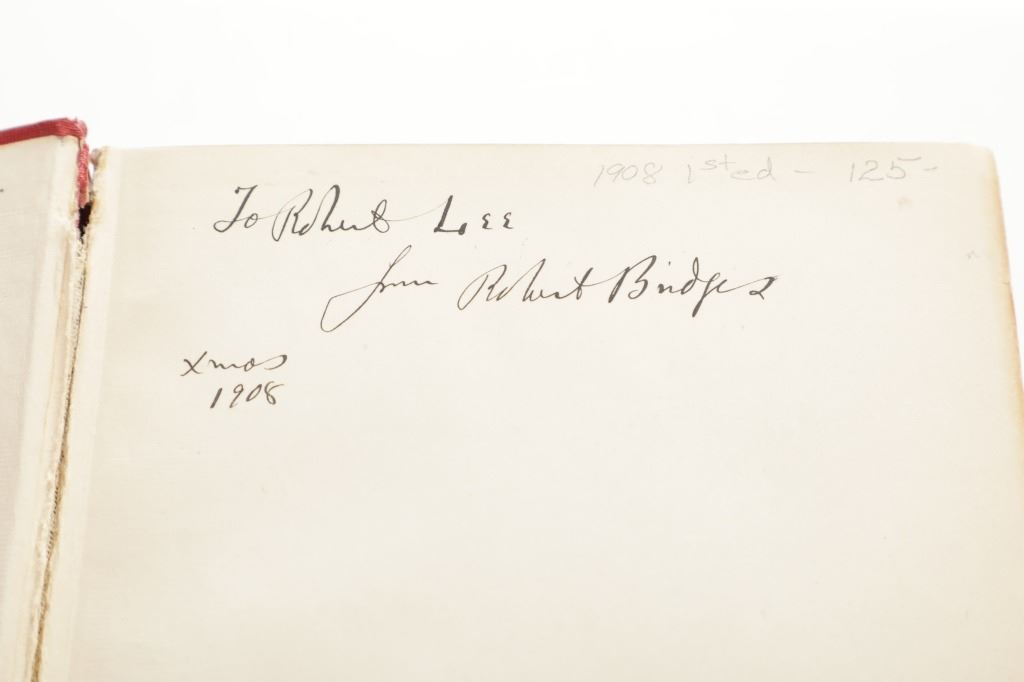 1908 1st ed - 125-
To Robert Lee
from Robert Bridges
Xmas
1908